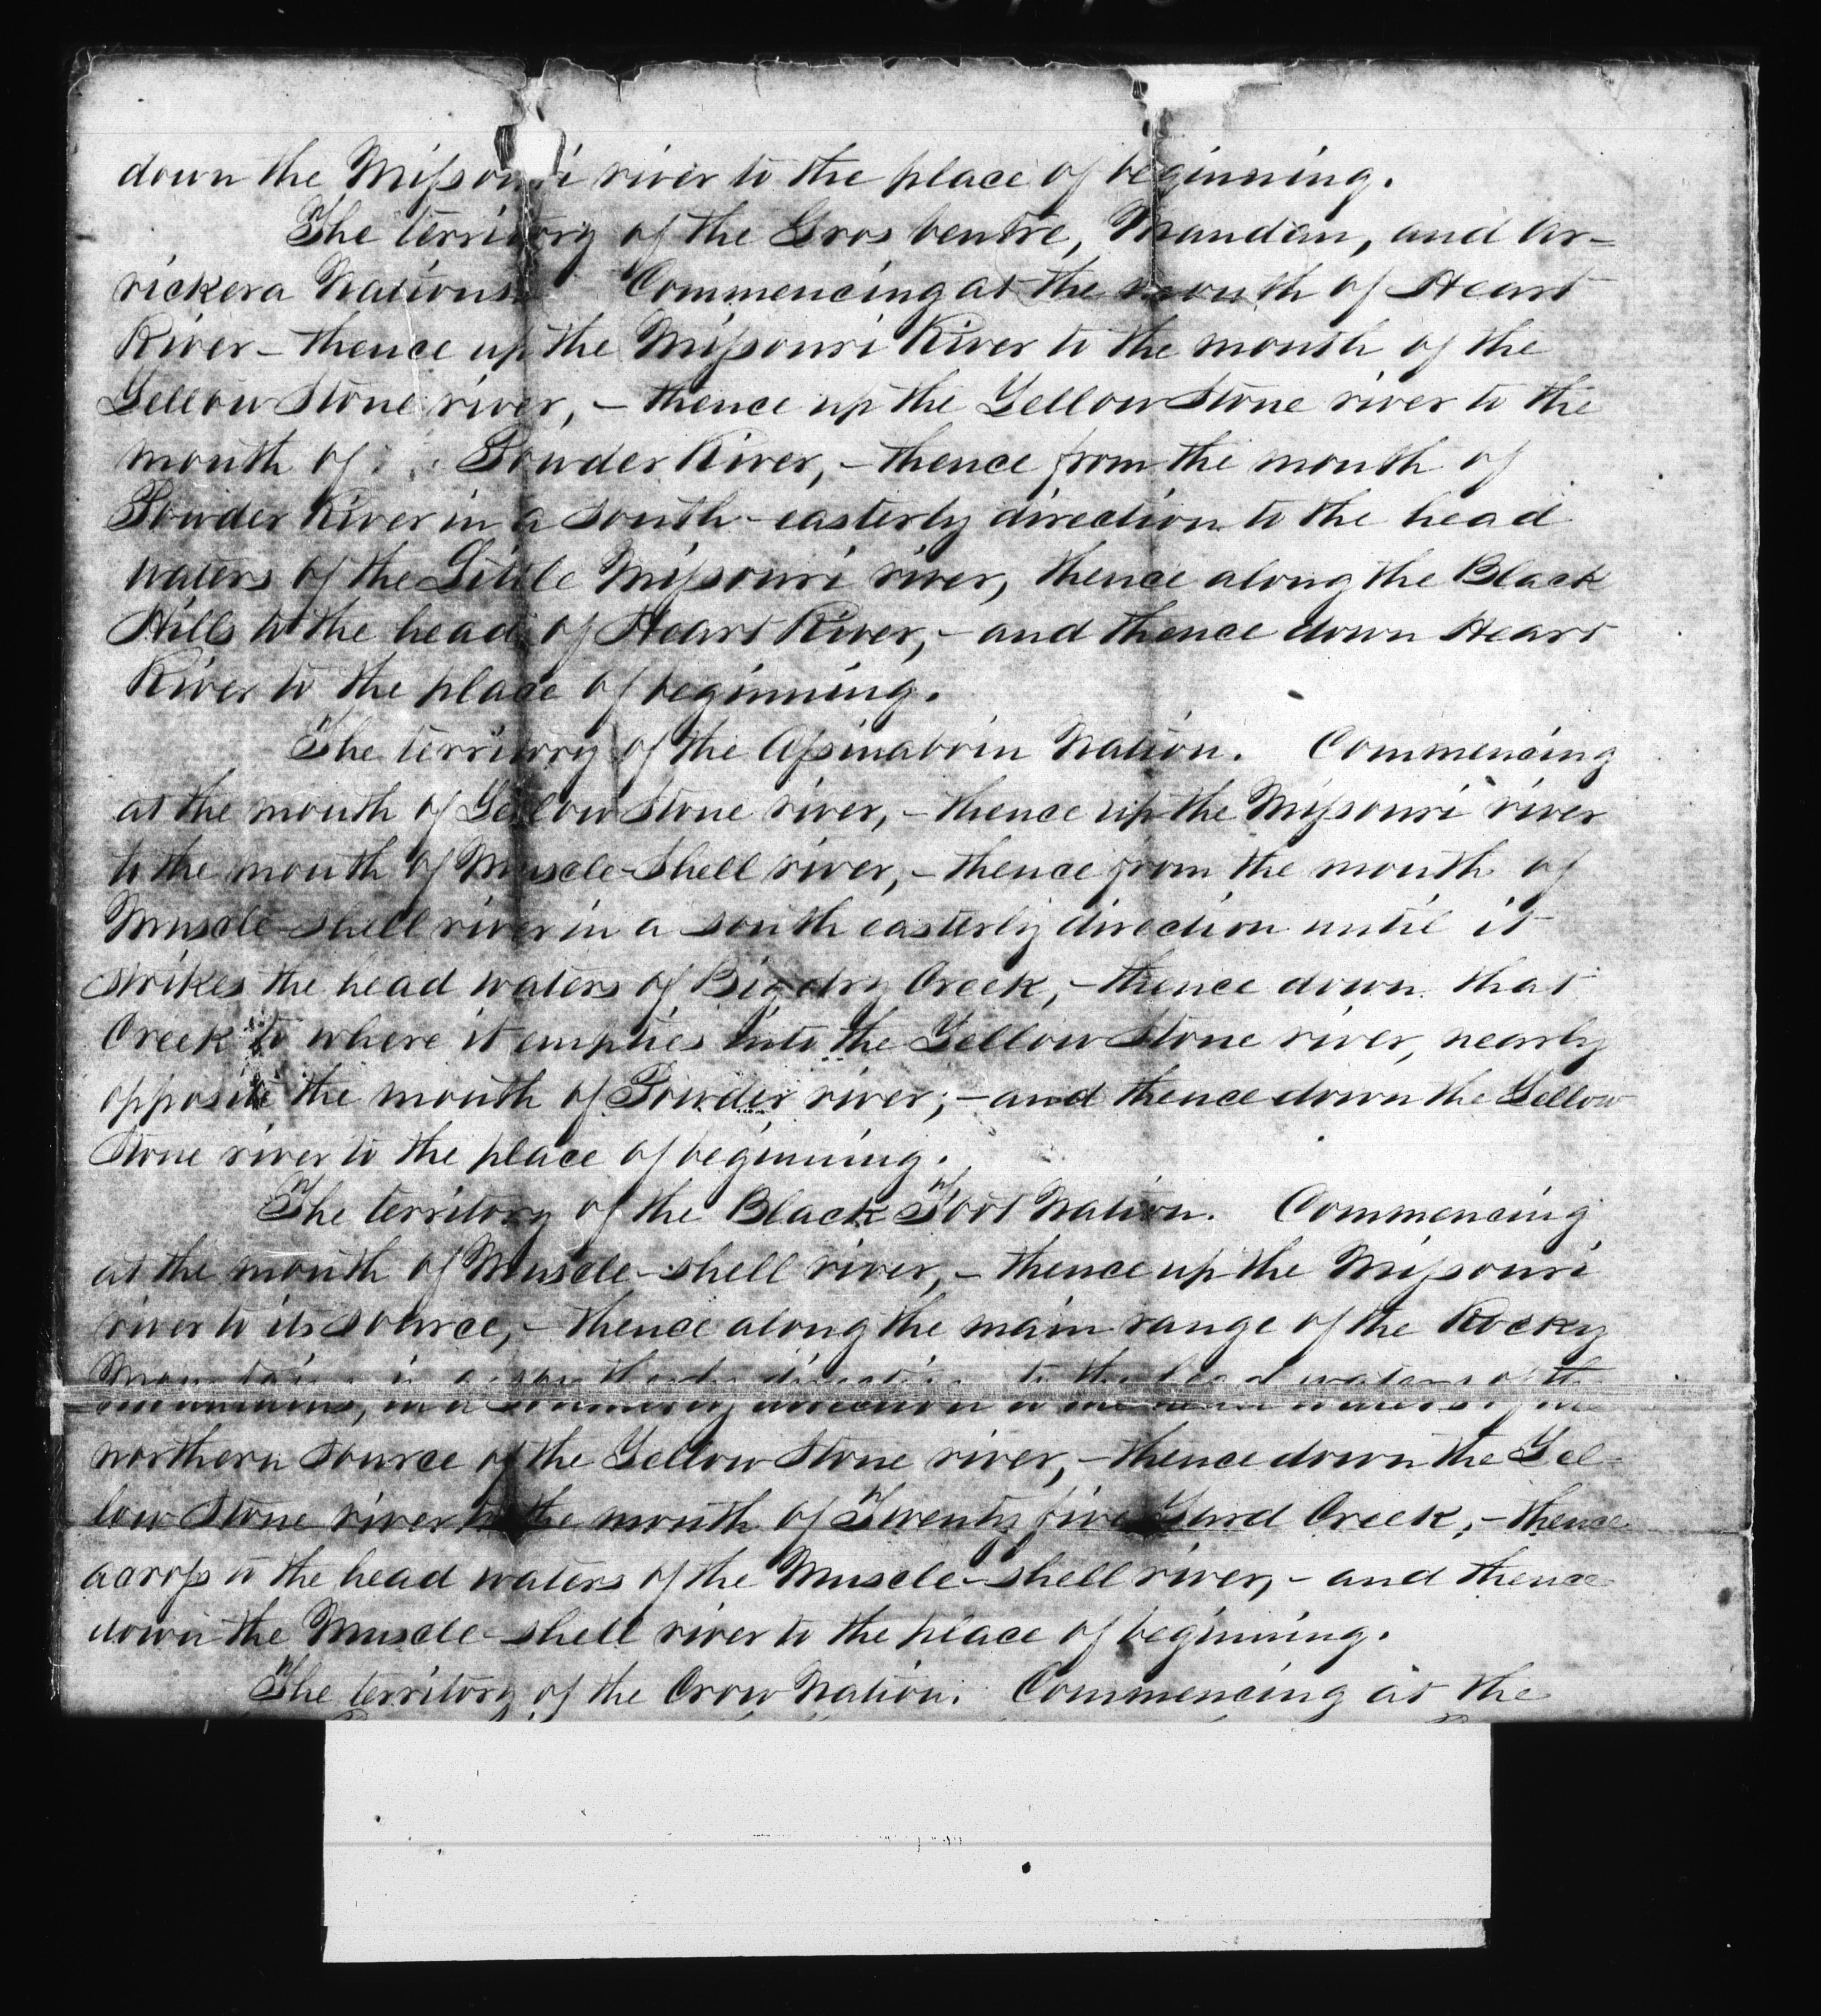 down the Missouri river to the place of beginning.
The territory of the Gros ventre, Mandan, and Ar=
rickera Nations. Commencing at the mouth of Heart
River – thence up the Missouri River to the mouth of the
Yellow Stone river, – thence up the Yellow Stone river to the
mouth of Powder River, – thence from the mouth of
Powder River in a south-easterly direction to the head
waters of the Little Missouri river, thence along the Black
Hills to the head of Heart River, – and thence down Heart
River to the place of beginning.
The territory of the Assinaboin Nation. Commencing
at the mouth of Yellow Stone river, – thence up the Missouri river
to the mouth of Muscle-shell river, – thence from the mouth of
Muscle-shell river in a south easterly direction until it
strikes the head waters of Big dry Creek, – thence down that
Creek to where it empties into the Yellow Stone river, nearly
opposite the mouth of Powder river; – and thence down the Yellow
Stone river to the place of beginning.
The territory of the Black Foot Nation. Commencing
at the mouth of Muscle-shell river, – thence up the Missouri
river to its source, – thence along the main range of the Rocky
Mountains, in a southerly direction to the head waters of the
northern source of the Yellow Stone river, – thence down the Yel-
low Stone river to the mouth of Twenty five Yard Creek, – thence
across to the head waters of the Muscle-shell river, – and thence
down the Muscle-shell river to the place of beginning.
The territory of the Crow Nation. Commencing at the